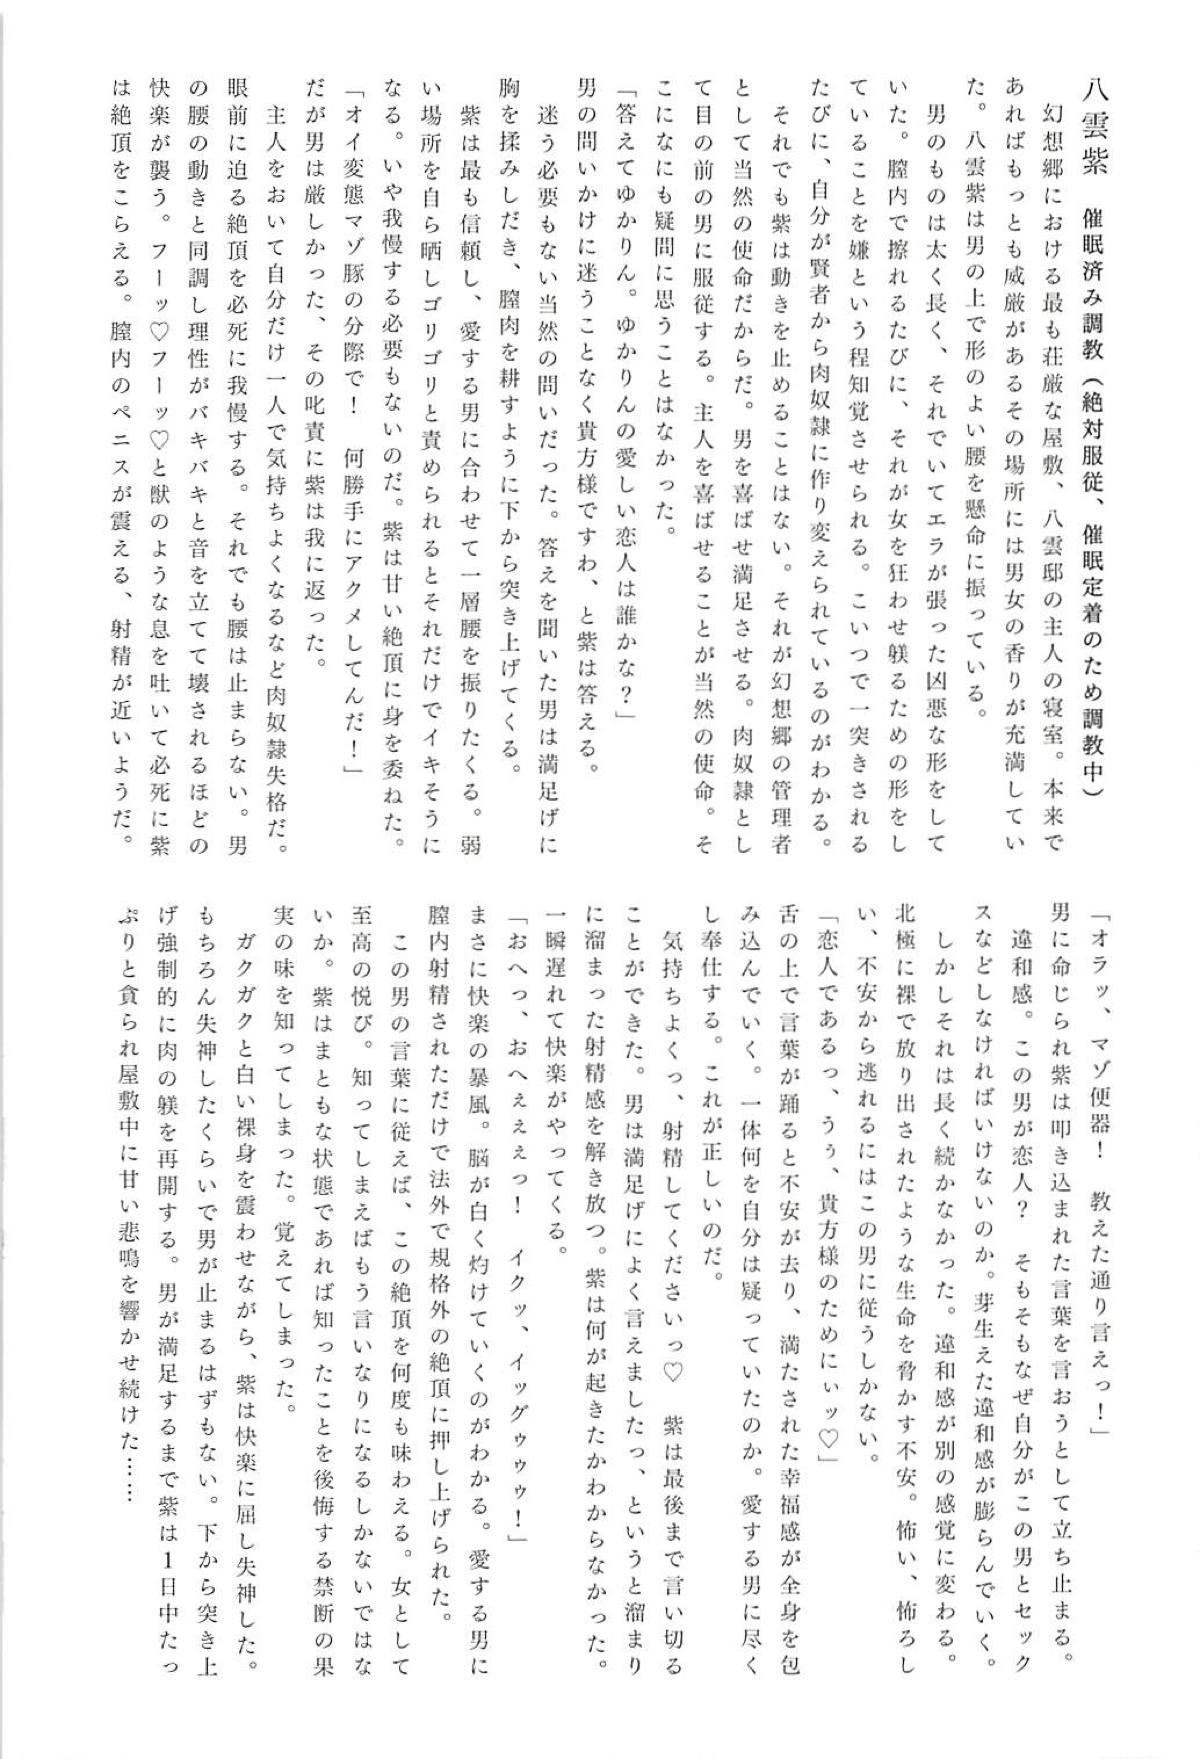 八雲紫　催眠済み調教（絶対服従、催眠定着のため調教中）
　幻想郷における最も荘厳な屋敷、八雲邸の主人の寝室。本来で
あればもっとも威厳があるその場所には男女の香りが充満してい
た。八雲紫は男の上で形のよい腰を懸命に振っている。
　男のものは太く長く、それでいてエラが張った凶悪な形をして
いた。膣内で擦れるたびに、それが女を狂わせ躾るための形をし
ていることを嫌という程知覚させられる。こいつで一突きされる
たびに、自分が賢者から肉奴隷に作り変えられているのがわかる。
　それでも紫は動きを止めることはない。それが幻想郷の管理者
として当然の使命だからだ。男を喜ばせ満足させる。肉奴隷とし
て目の前の男に服従する。主人を喜ばせることが当然の使命。そ
こになにも疑問に思うことはなかった。
「答えてゆかりん。ゆかりんの愛しい恋人は誰かな？」
男の問いかけに迷うことなく貴方様ですわ、と紫は答える。
　迷う必要もない当然の問いだった。答えを聞いた男は満足げに
胸を揉みしだき、膣肉を耕すように下から突き上げてくる。
　紫は最も信頼し、愛する男に合わせて一層腰を振りたくる。弱
い場所を自ら晒しゴリゴリと責められるとそれだけでイキそうに
なる。いや我慢する必要もないのだ。紫は甘い絶頂に身を委ねた。
「オイ変態マゾ豚の分際で！　何勝手にアクメしてんだ！」
だが男は厳しかった、その叱責に紫は我に返った。
　主人をおいて自分だけ一人で気持ちよくなるなど肉奴隷失格だ。
眼前に迫る絶頂を必死に我慢する。それでも腰は止まらない。男
の腰の動きと同調し理性がバキバキと音を立てて壊されるほどの
快楽が襲う。フーッ♡フーッ♡と獣のような息を吐いて必死に紫
は絶頂をこらえる。膣内のペニスが震える、射精が近いようだ。
「オラッ、マゾ便器！　教えた通り言えっ！」
男に命じられ紫は叩き込まれた言葉を言おうとして立ち止まる。
　違和感。この男が恋人？　そもそもなぜ自分がこの男とセック
スなどしなければいけないのか。芽生えた違和感が膨らんでいく。
　しかしそれは長く続かなかった。違和感が別の感覚に変わる。
北極に裸で放り出されたような生命を脅かす不安。怖い、怖ろし
い、不安から逃れるにはこの男に従うしかない。
「恋人であるっ、うぅ、貴方様のためにぃッ♡」
舌の上で言葉が踊ると不安が去り、満たされた幸福感が全身を包
み込んでいく。一体何を自分は疑っていたのか。愛する男に尽く
し奉仕する。これが正しいのだ。
　気持ちよくっ、射精してくださいっ♡　紫は最後まで言い切る
ことができた。男は満足げによく言えましたっ、というと溜まり
に溜まった射精感を解き放つ。紫は何が起きたかわからなかった。
一瞬遅れて快楽がやってくる。
「おへっ、おへぇぇぇっ！　イクッ、イッグゥゥゥ！」
まさに快楽の暴風。脳が白く灼けていくのがわかる。愛する男に
膣内射精されただけで法外で規格外の絶頂に押し上げられた。
　この男の言葉に従えば、この絶頂を何度も味わえる。女として
至高の悦び。知ってしまえばもう言いなりになるしかないではな
いか。紫はまともな状態であれば知ったことを後悔する禁断の果
実の味を知ってしまった。覚えてしまった。
　ガクガクと白い裸身を震わせながら、紫は快楽に屈し失神した。
もちろん失神したくらいで男が止まるはずもない。下から突き上
げ強制的に肉の躾を再開する。男が満足するまで紫は１日中たっ
ぷりと貪られ屋敷中に甘い悲鳴を響かせ続けた……